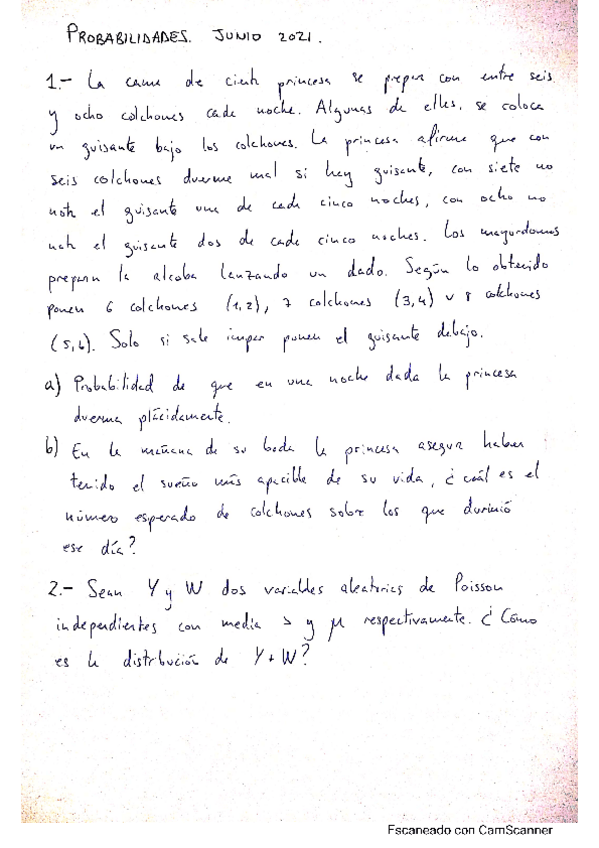 PROBABILIDADES. JUNIO 2021.
1.- La cama de cierta princesa se prepara con entre seis
y ocho colchones cada noche. Algunas de ellas, se coloca
un guisante bajo los colchones. La princesa afirma que con
seis colchones duerme mal si hay guisante, con siete no
nota el guisante una de cada cinco noches, con ocho no
nota el guisante dos de cada cinco noches. Los mayordomos
preparan la alcoba lanzando un dado. Según lo obtenido
ponen 6 colchones (1,2), 7 colchones (3,4) u 8 colchones
(5,6). Solo si sale impar ponen el guisante debajo.
a) Probabilidad de que en una noche dada la princesa
duerma plácidamente.
b) En la mañana de su boda la princesa asegura haber
tenido el sueño más apacible de su vida, ¿cuál es el
número esperado de colchones sobre los que durmió
ese día?
2.- Sean Y y W dos variables aleatorias de Poisson
independientes con media λ y μ respectivamente. ¿Cómo
es la distribución de Y+W?
Escaneado con CamScanner